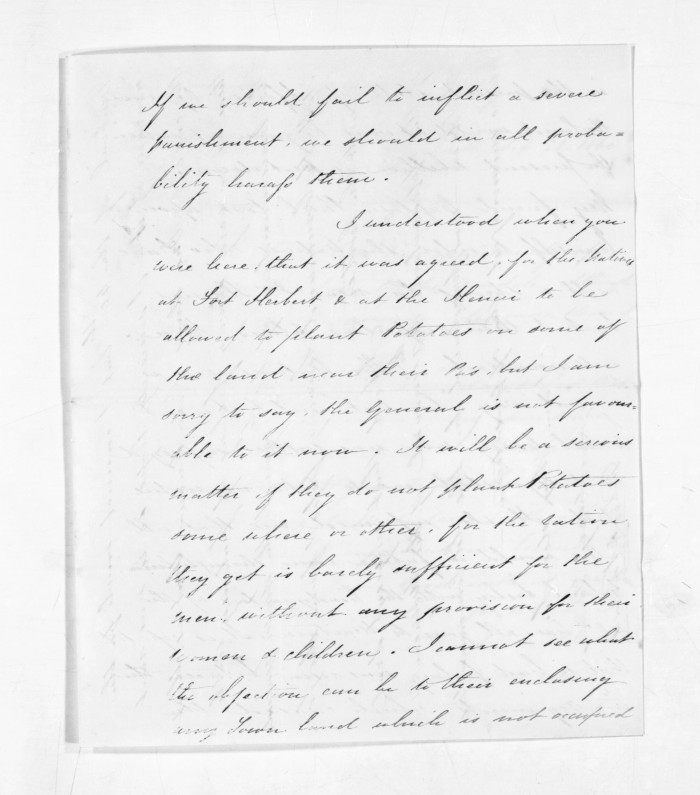 If we should fail to inflict a severe
punishment, we should in all proba=
bility harass them.
I understood when you
were here, that it was agreed, for the Natives
at Fort Herbert & at the Henui to be
allowed to plant Potatoes on some of
the land near their Pa's, but I am
sorry to say, the General is not favour=
able to it now. It will be a serious
matter if they do not plant Potatoes
some where or other, for the ration
they get is barely sufficient for the
men, without any provision for their
women & children. I cannot see what
the objection can be to their enclosing
any Town land which is not occupied